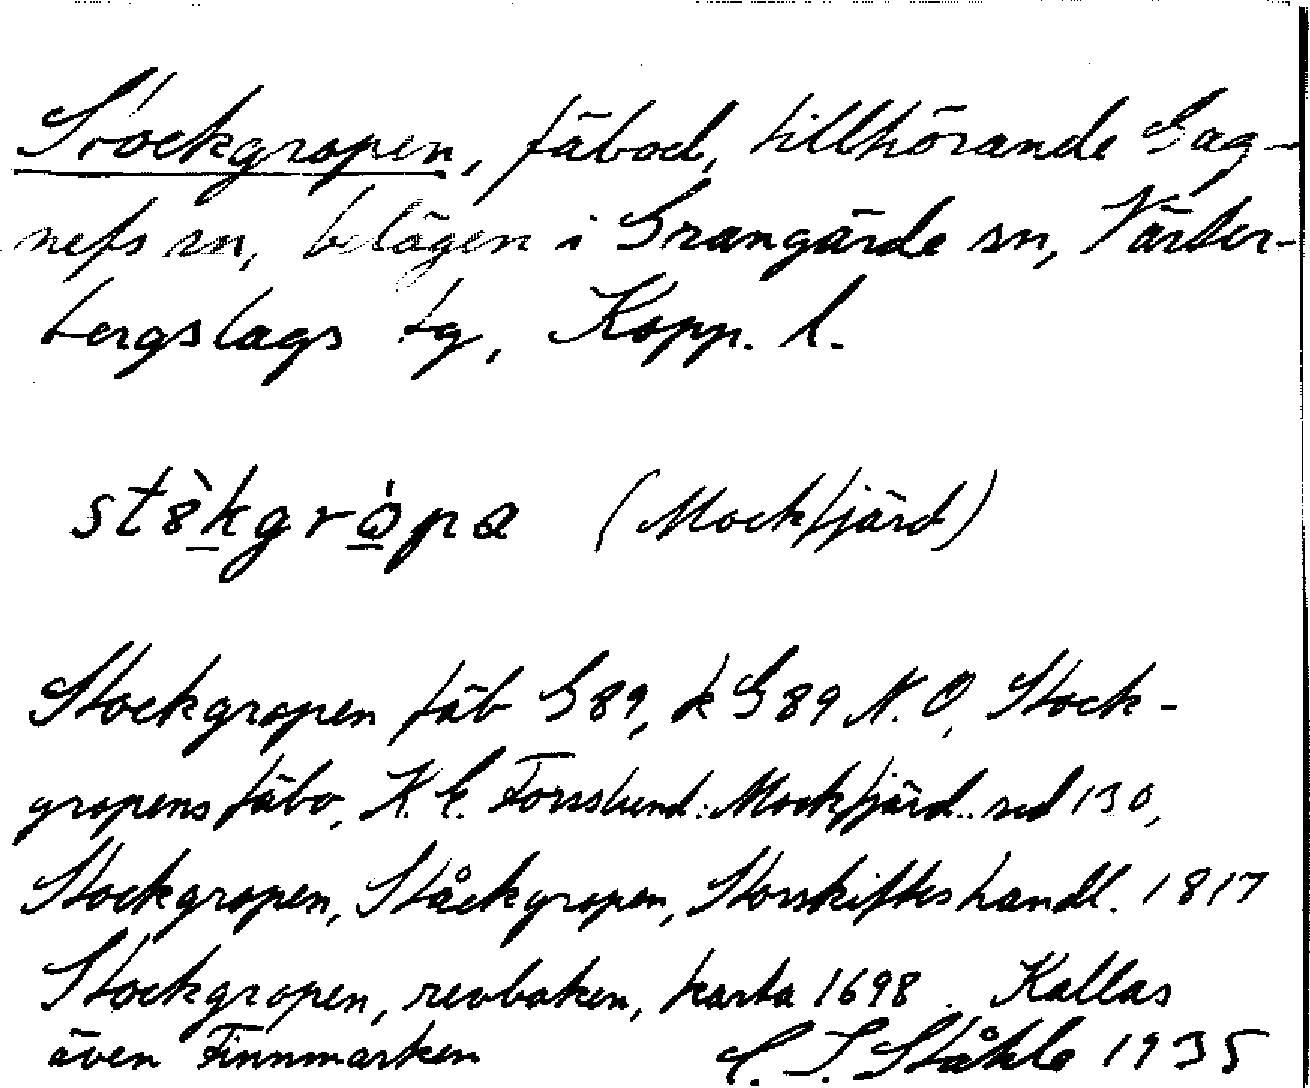 Stockgropen, fäbod, tillhörande Gag-
nefs sn, belägen i Grangärde sn, Väster-
bergslags tg, Kopp. l.
(Mockfjärd)
Stockgropen fäb G 89, k G 89 N. O, Stock-
gropens fäbo, K. E. Forsslund: Mockfjärd.. sid 130,
Stockgropen, Ståckgropen, Storskifteshandl. 1817
Stockgropen, revboken, karta 1698. Kallas
även Finnmarken C. I. Ståhle 1935